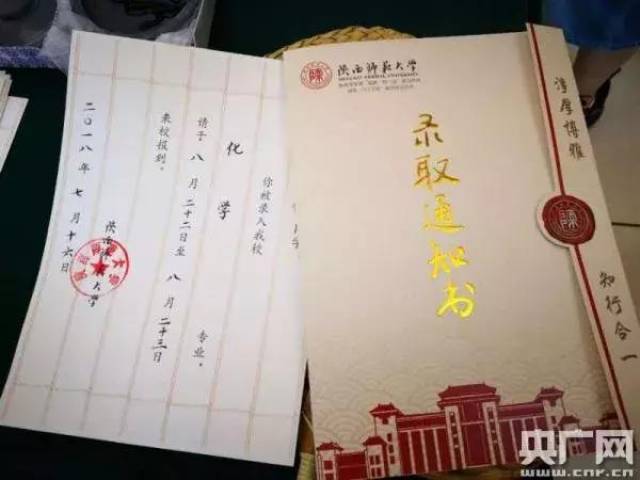 你被录入我校
化学
专业。
请于八月二十二日至八月二十三日
来校报到。
陕西师
大学
二〇一八年七月十六日
陕西师范大学
SHAANXI NORMAL UNIVERSITY
录取通知书
淳厚博雅
知行合一
央广网
www.cnr.cn